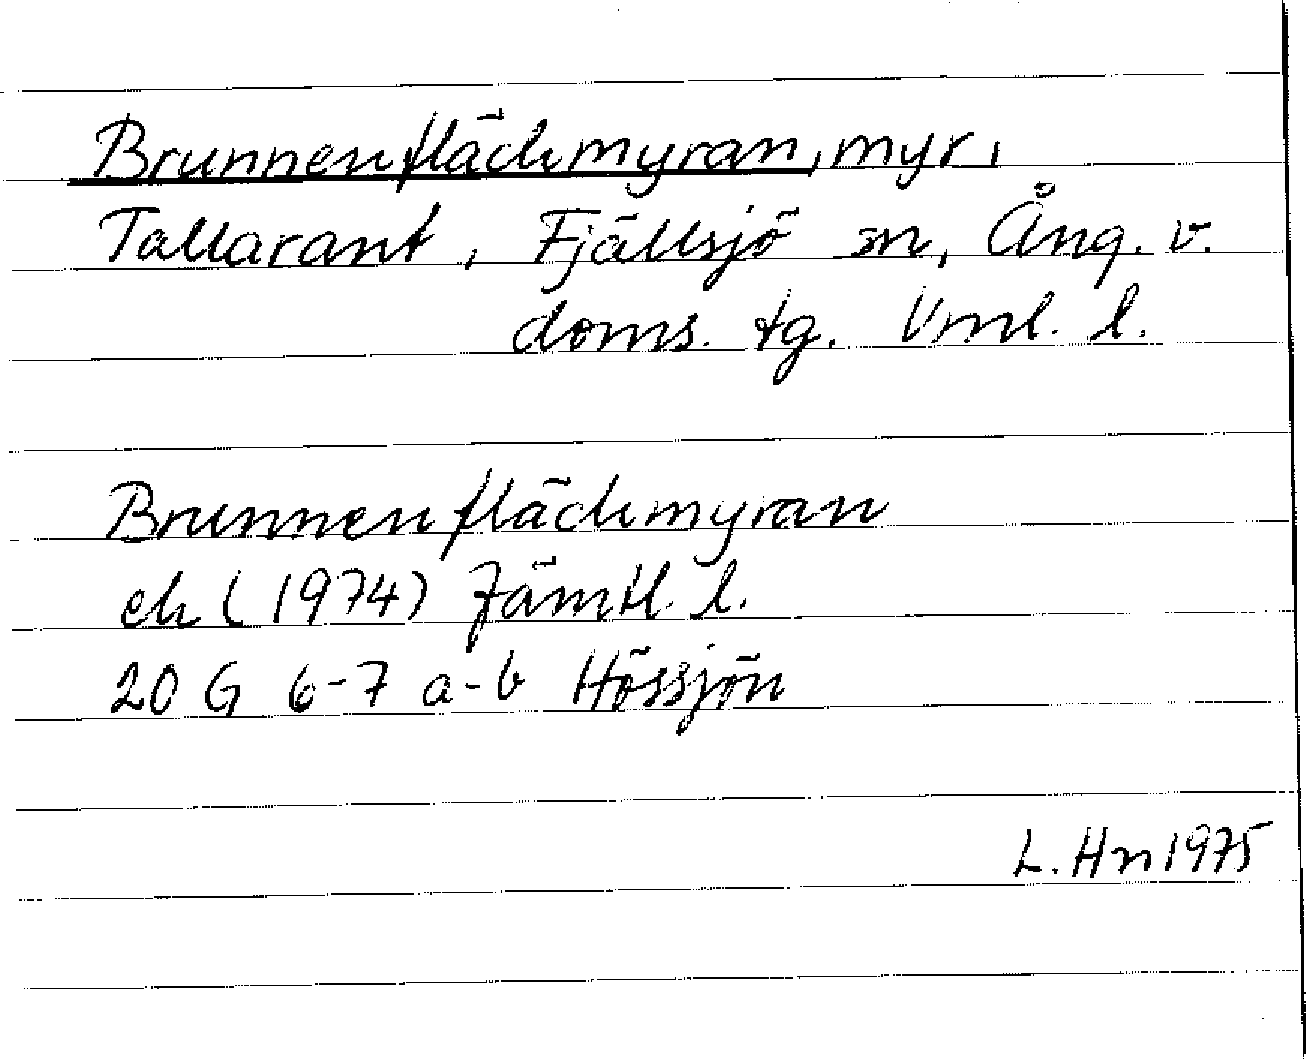 Brunnenflächmyran, myr,
Tallarant, Fjällsjö sn, Ång. v.
doms. tg. Vml. l.
Brunnenflächmyran
ek (1974) Jämtl. l.
20 G 6-7 a-b Hössjön
L. Hn 1975